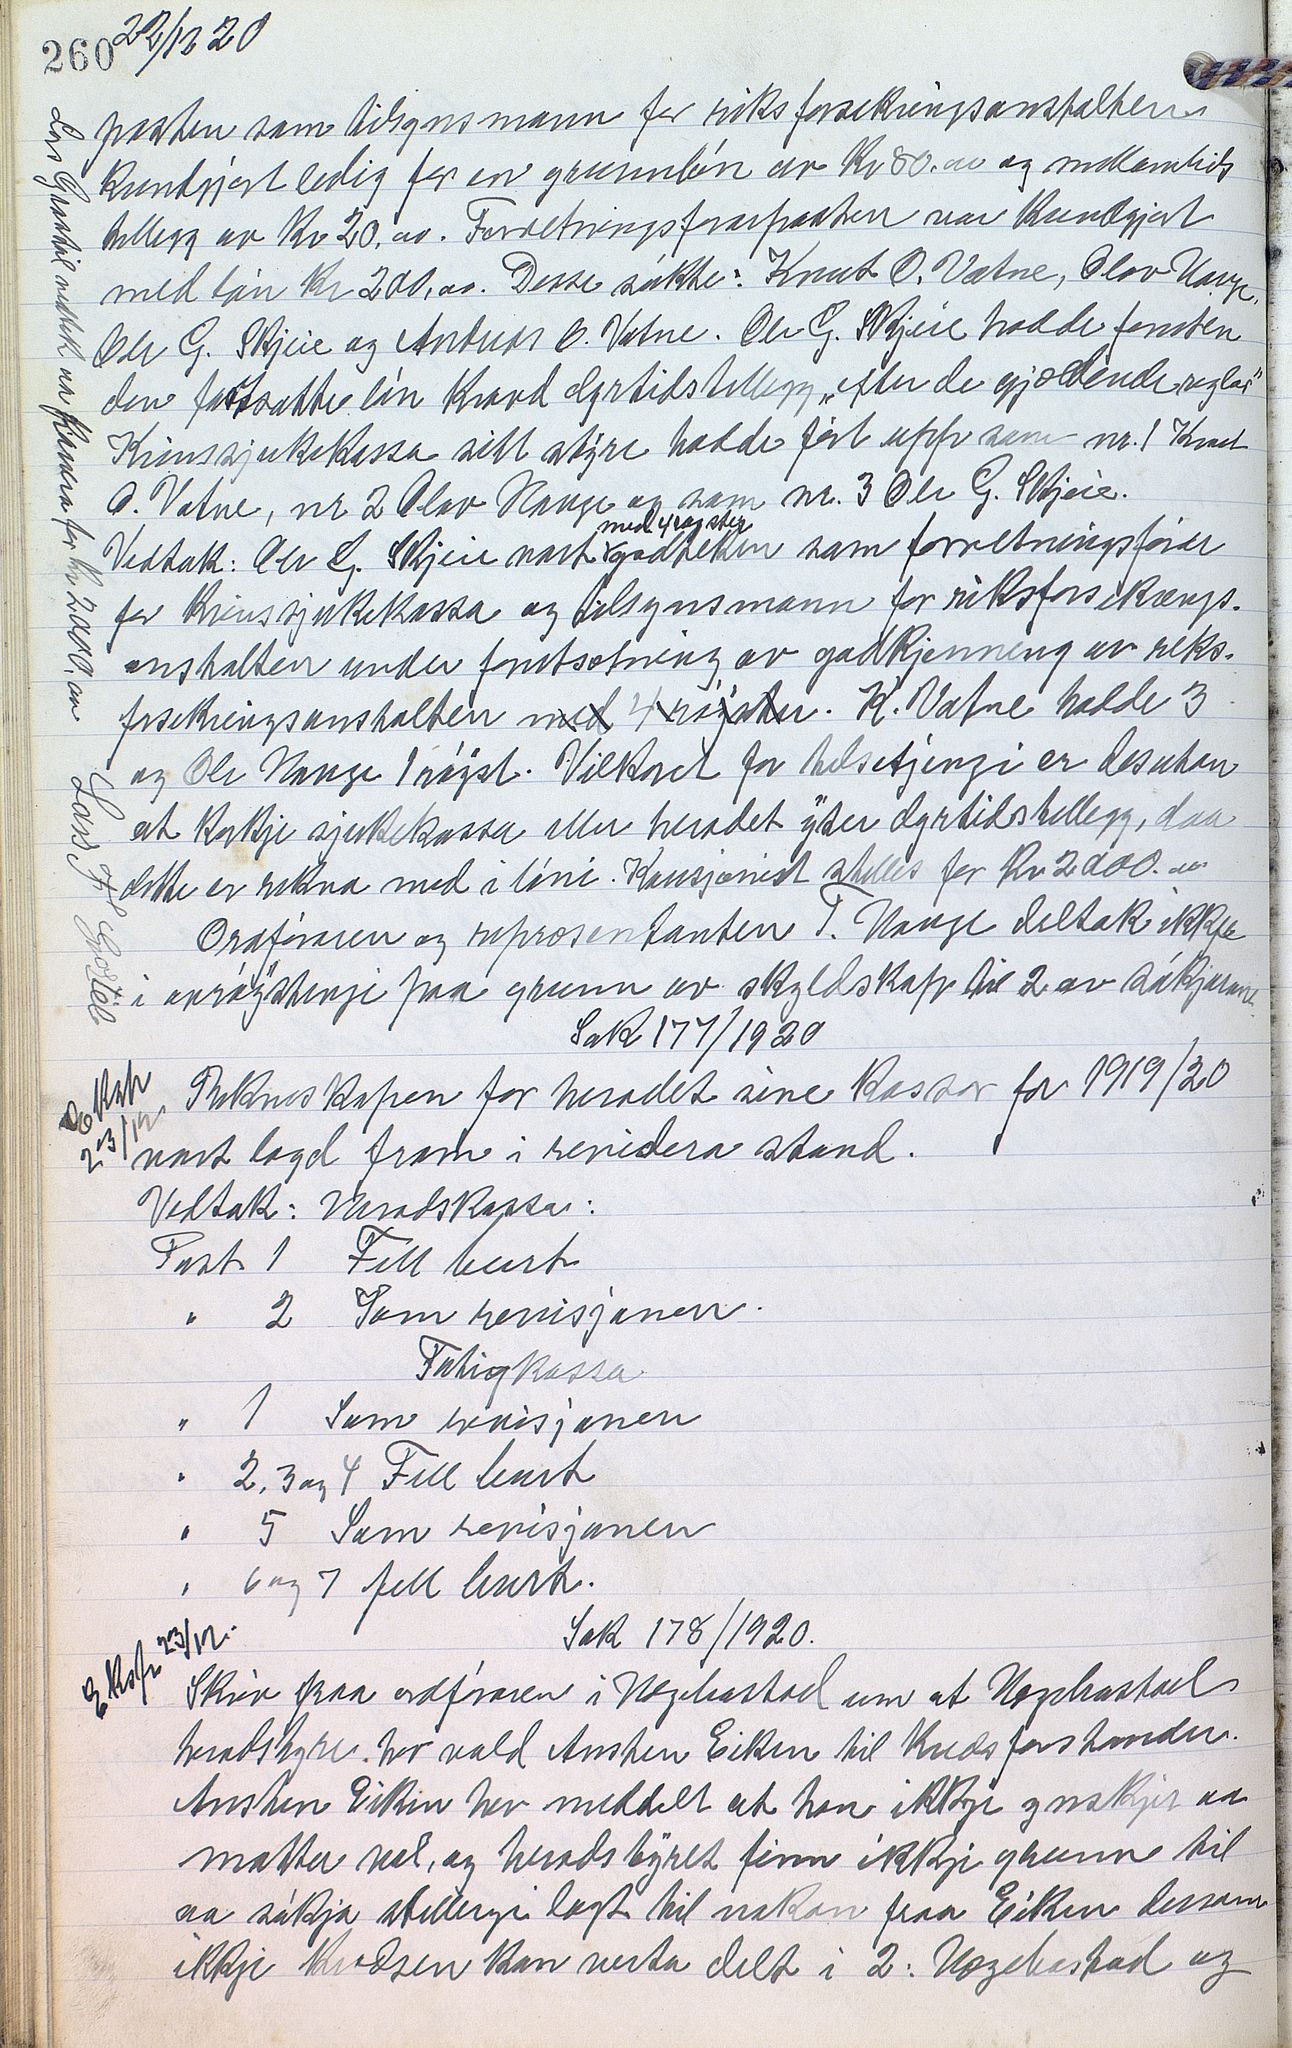 260 22/12 20
posten som tilsynsmann for riksforsekringsanstalten
kundgjort ledig for en grunnløn av Kr 80.oo og midlamtids
tillegg av Kr 20,oo. Forretningsførarposten var kundgjort
med løn kr 200,oo. Desse søkte: Knut O. Vatne, Olav Hauge,
Ole G. Skjeie og Andreas O. Vatne. Ole G. Skjeie hadde foruten
den fastsatte løn krevd dyrtidstillegg „efter de gjældende regler"
Krinssjukekassa sitt styre hadde ført upp som nr. 1 Knut
O. Vatne, nr 2 Olav Hauge og som nr. 3 Ole G. Skjeie.
med 4 røyster
Vedtak: Ole G. Skjeie vart godteken som forretningsfører
for Krinssjukekassa og tilsynsmann for riksforsekrings-
anstalten under forutsetning av godkjenning av riks-
forsekringsanstalten med 4 røyster. K. Vatne hadde 3
og Ole Hauge 1 røyst. Vilkoret for tilsetjingi er desutan
at korkje sjukekassa eller heradet yter dyrtidstillegg, daa
dette er rekna med i løni. Kausjonist stilles for Kr 2000.oo
Ordføraren og representanten T. Hauge deltok ikkje
i avrøystingi paa grunn av skyldskap til 2 av søkjarane.
Lars Grostøl vedtek aa kavera for kr 2000,oo Lars Grostøl
Sak 177/1920
Eksp
23/12.
Rekneskapen for heradet sine kassor for 1919/20
vart lagd fram i revidera stand.
Vedtak: Heradskassa:
Post 1 Fell burt
" 2 Som revisjonen.
Fatigkassa
" 1 Som revisjonen
" 2, 3 og 4 Fell burt
" 5 Som revisjonen
" 6 og 7 fell burt.
Sak 178/1920.
Eksp 23/12.
Skriv fraa ordføraren i Hægebostad um at Hægebostad
heradstyre hev vald Ansten Eiken til Kredsforstander.
Ansten Eiken hev meddelt at han ikkje ynskjer aa
motta val, og heradstyret finn ikkje grunn til
aa søkja stillingi lagt til nokon fraa Eiken dersom
ikkje Kredsen kan verta delt i 2: Hægebostad og